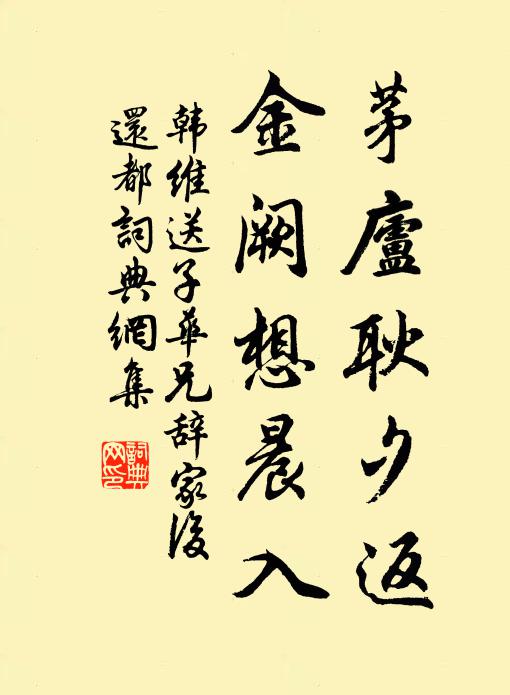 茅廬耿夕返
金阙想晨入
韩维送子華兄辞家後
還都詞典網集
詞典
网印